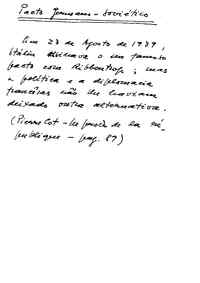 Pacto Germano-Soviético
Em 23 de Agosto de 1939,
Stálin assinava o seu famoso
pacto com Ribbentrop; mas
a política e a diplomacia
francesas não lhe haviam
deixado outra alternativa.
(Pierre Cot - Le procès de la ré-
publique - pag. 87)